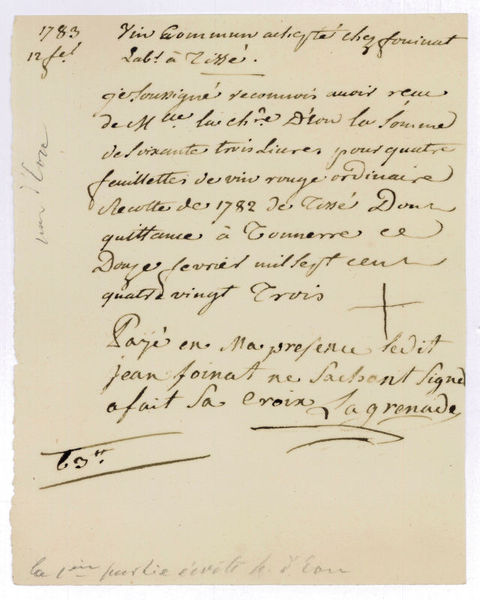 1783
12 fev.
Vin Commun achepté chez foüinat
Lab.r à Tissé.
je soussigné reconnois avoir recu
de M.lle la ch.re Déon la somme
de soixante trois Livres pour quatre
feuillettes de vin rouge ordinaire
Recolte de 1782 de Tissé Dont
quittance à Tonnerre ce
Douze fevrier mil sept cent
quatre vingt Trois
Payé en Ma presence ledit
jean foinat ne Sachant Signé
a fait Sa Croix Lagrenade
63.tt
la 1ere partie écrite d'Eon
d'Eon